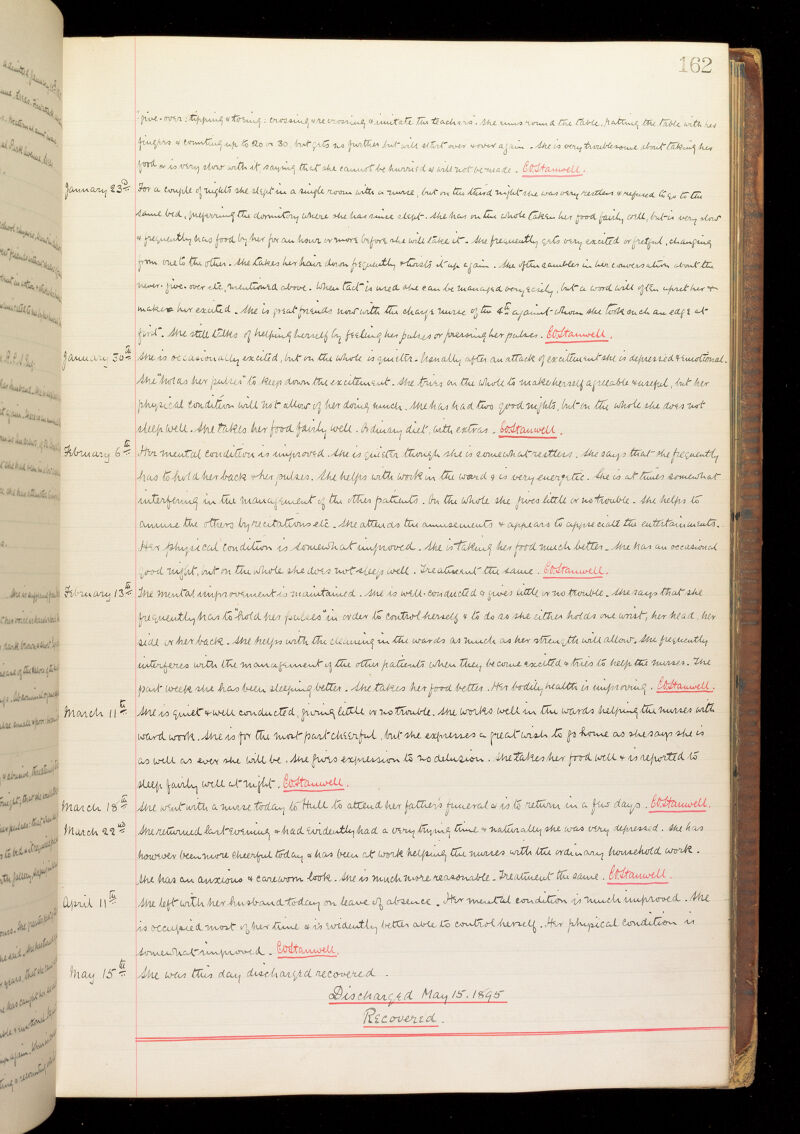 162
give-over: tipping & toeing: crossing & recrossing & imitate the teachers. She runs round the table, patting the table with her
fingers & counting up to 20 or 30, but gets no further but will start over & over again. She is very troublesome about taking her
food & is very slow with it saying that she cannot be hurried & will not be made. EOStanwell.
January 23rd For a couple of nights she slept in a single room with a nurse, but on the third night she was very restless & refused to go to the
same bed, preferring the dormitory where she has since slept. She has on the whole taken her food fairly well, but is very slow
& frequently has food by her for an hour or more before she will take it. She frequently gets very excited or fretful, changing
from one to the other. She takes her hair down frequently & twists it up again. She often rambles in her conversation about the
never-give-over etc, mentioned above. When tact is used she can be managed very easily, but a word will often upset her &
makes her excited. She is great friends now with the charge nurse of the 4th against whom she took such an edge at
first. She still talks of helping herself by feeling her pulses or pressing her pulses. EOStanwell.
January 30th She is occasionally excited, but on the whole is quieter. Usually after an attack of excitement she is depressed & emotional.
She "holds her pulses" to keep down the excitement. She tries on the whole to make herself agreeable & useful, but her
physical condition will not allow of her doing much. She has had two good nights, but on the whole she does not
sleep well. She takes her food fairly well. Ordinary diet, with extras. EOStanwell.
February 6th Her mental condition is improved. She is quieter though she is somewhat restless. She says that she frequently
has to hold her back & her pulses. She helps with work in the ward & is very energetic. She is at times somewhat
interfering in the management of the other patients. On the whole she gives little or no trouble. She helps to
amuse the others by recitations etc. She attends the amusements & appears to appreciate the entertainments.
Her physical condition is somewhat improved. She is taking her food much better. She has an occasional
good night, but on the whole she does not sleep well. Treatment the same. EOStanwell.
February 13th The mental improvement is maintained. She is well-conducted & gives little or no trouble. She says that she
frequently has to "hold her pulses" in order to control herself & to do so she either holds one wrist, her head, her
side or her back. She helps with the cleaning in the wards as much as her strength will allow. She frequently
interferes with the management of the other patients when they become excited & tries to help the nurses. The
past week she has been sleeping better. She takes her food better. Her bodily health is improving. EOStanwell.
March 11th She is quiet & well conducted, giving little or no trouble. She works well in the wards helping the nurses with
ward work. She is for the most part cheerful, but she expresses a great wish to go home as she says she is
as well as ever she will be. She gives expression to no delusion. She takes her food well & is reported to
sleep fairly well at night. EOStanwell.
March 18th She went with a nurse today to Hull to attend her father's funeral & is to return in a few days. EOStanwell.
March 22nd She returned last evening & had evidently had a very trying time & naturally she was very depressed. She has
however been more cheerful today & has been at work helping the nurses with the ordinary household work.
She has an anxious & careworn look. She is much more reasonable. Treatment the same. EOStanwell.
April 11th She left with her husband today on leave of absence. Her mental condition is much improved. She
is occupied most of her time & is evidently better able to control herself. Her physical condition is
somewhat improved. EOStanwell.
May 15th She was this day discharged recovered.
Discharged May 15. 1895
Recovered.